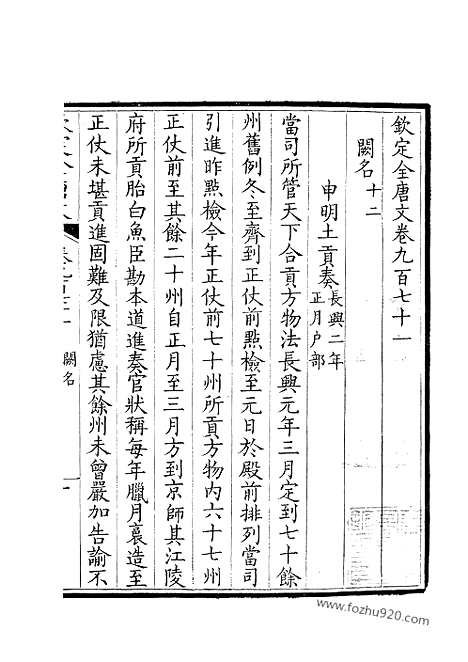 欽定全唐文卷九百七十一
闕名十二
申明土貢奏長興二年正月户部
當司所管天下合貢方物法長興元年三月定到七十餘
州舊例冬至齊到正仗前點檢至元日於殿前排列當司
引進昨點檢今年正仗前七十州所貢方物內六十七州
正仗前至其餘二十州自正月至三月方到京師其江陵
府所貢胎白魚臣勘本道進奏官狀稱每年臘月裏造至
正仗未堪貢進固難及限猶慮其餘州未曾嚴加告諭不
闕名
一
www.fozhu920.com